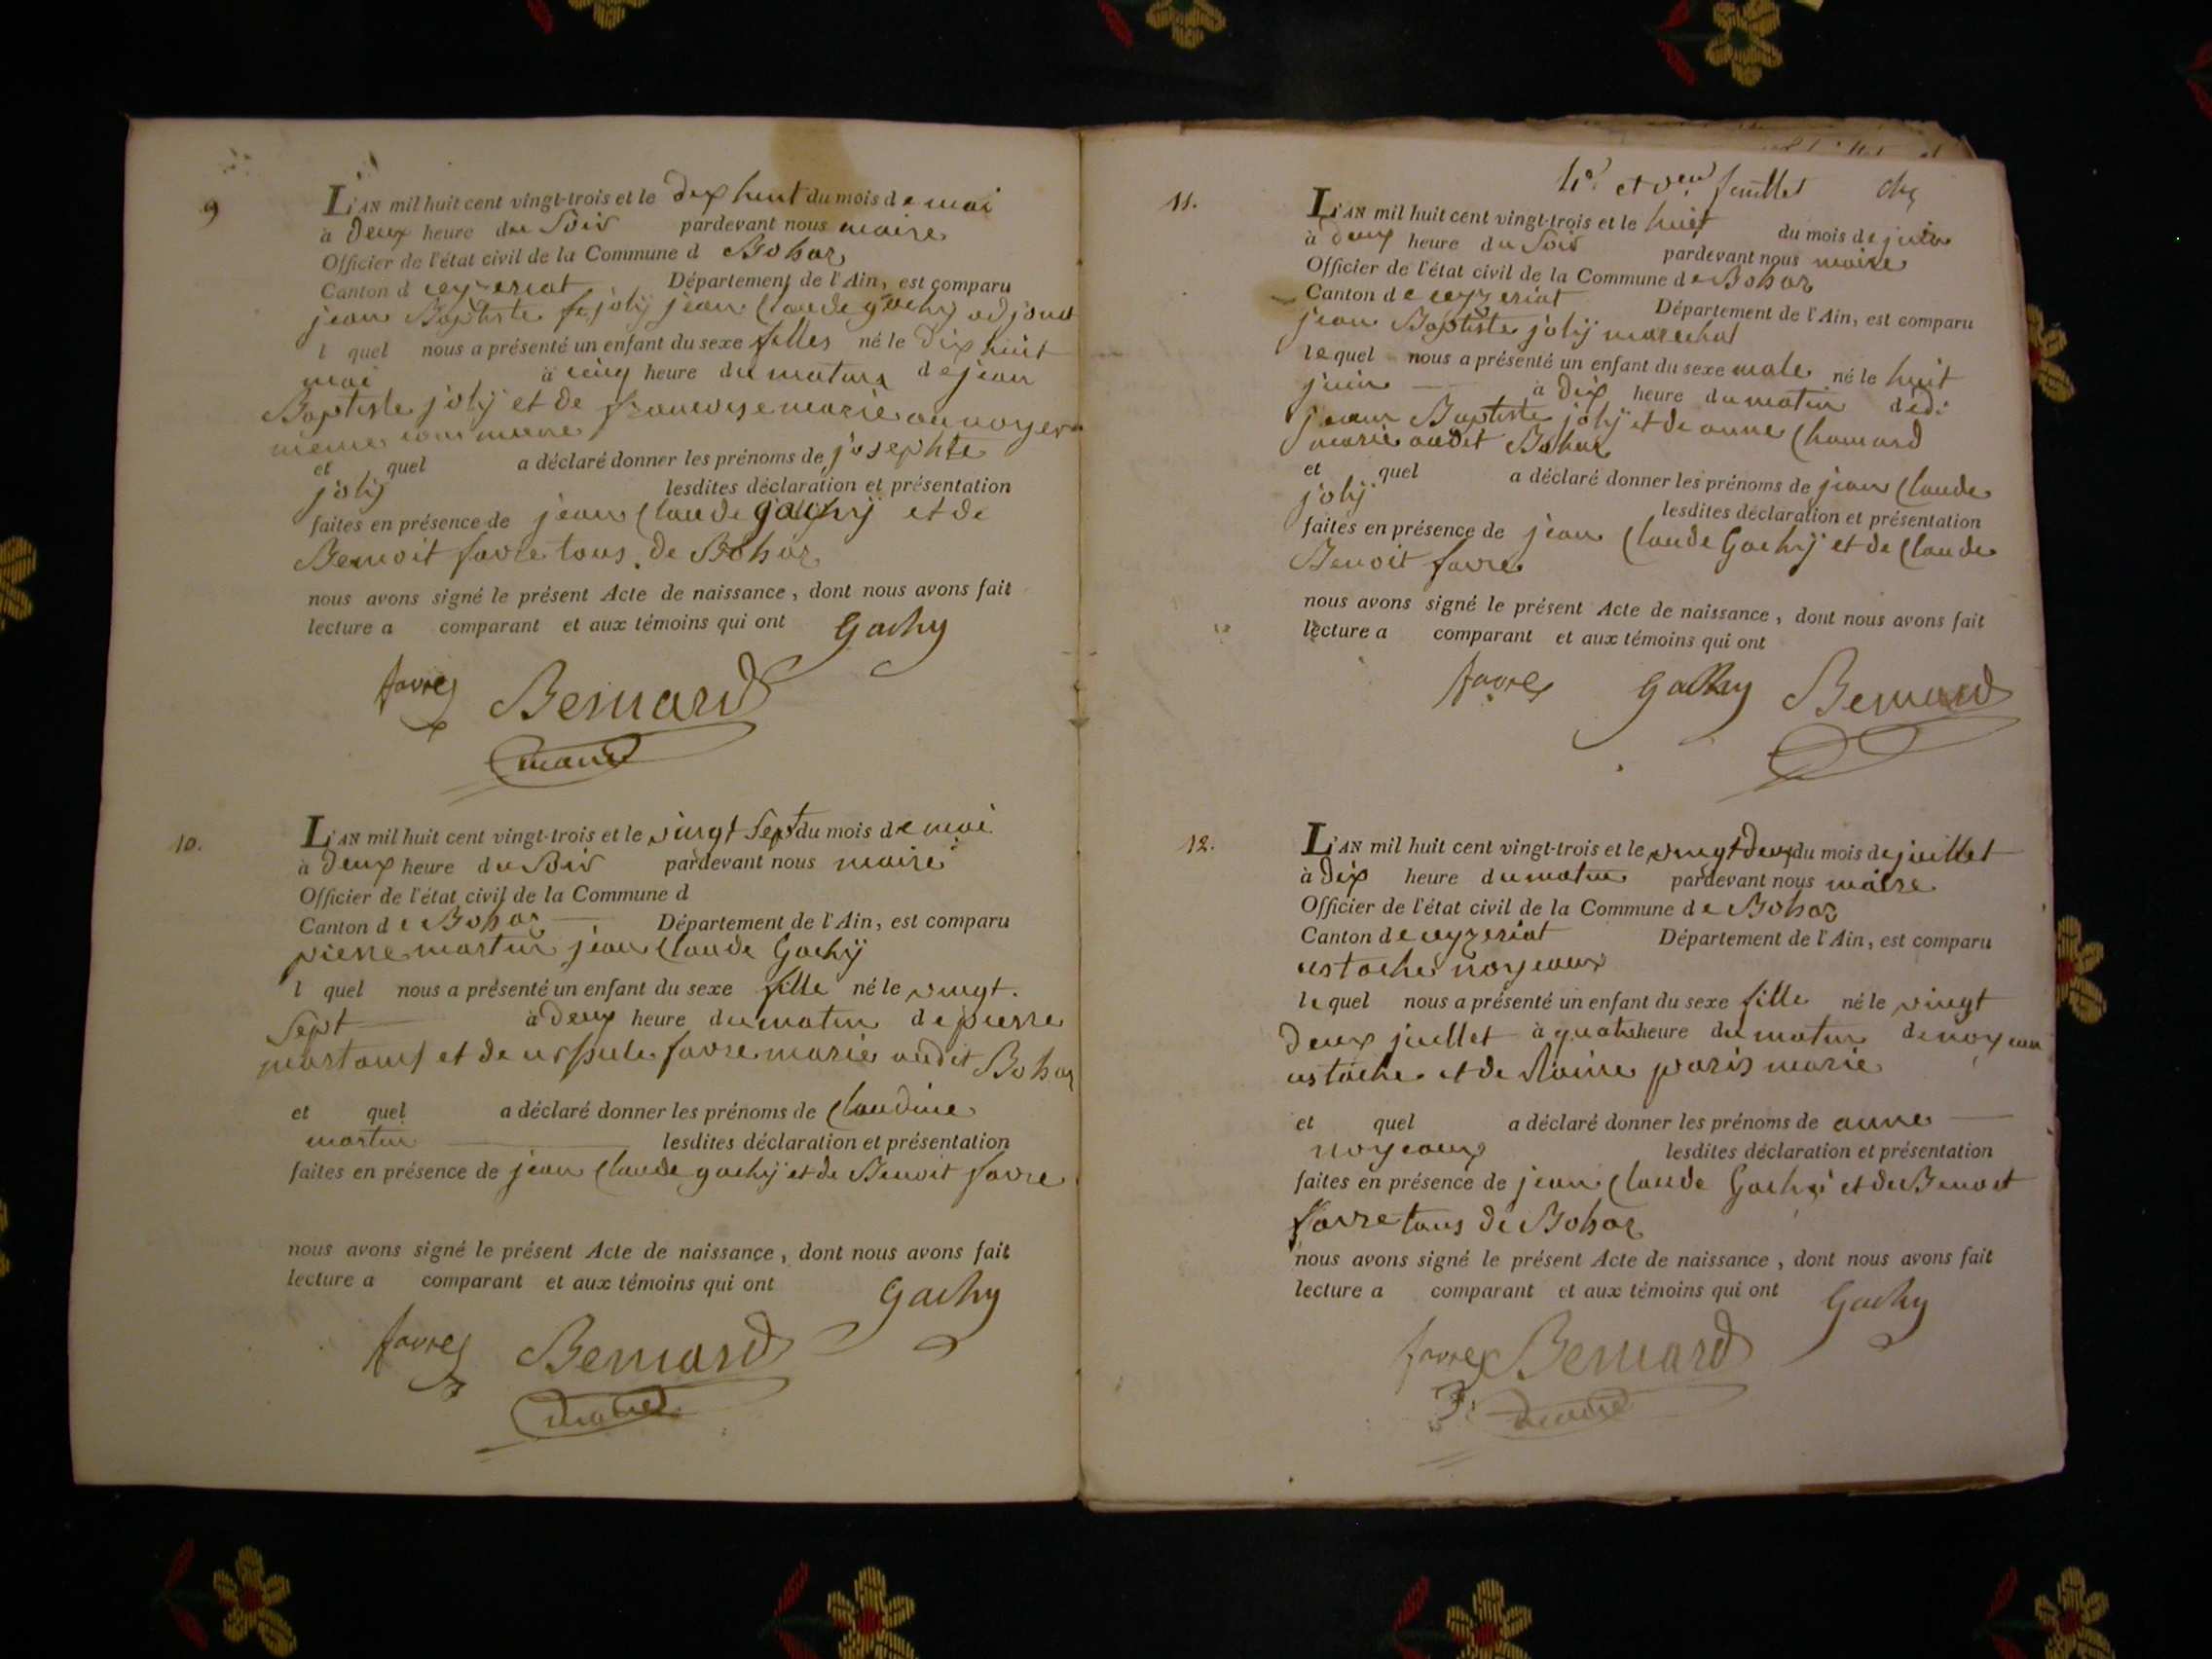 9
L'AN mil huit cent vingt-trois et le dix huit du mois de mai
à deux heure du soir pardevant nous maire
Officier de l'état civil de la Commune d Bohas
Canton d ceyzeriat Département de l'Ain, est comparu
jean Baptiste joly jean Claude gachy adjoint
l quel nous a présenté un enfant du sexe filles né le dix huit
mai à cinq heure du matin de jean
Baptiste joly et de francoise marie
meme commune
et quel a déclaré donner les prénoms de josephte
joly lesdites déclaration et présentation
faites en présence de jean Claude gachy et de
Benoit favre tous de Bohas
nous avons signé le présent Acte de naissance, dont nous avons fait
lecture a comparant et aux témoins qui ont Gachy
favre Bernard
maire
10.
L'AN mil huit cent vingt-trois et le vingt sept du mois de mai
à deux heure du soir pardevant nous maire
Officier de l'état civil de la Commune d
Canton de Bohas Département de l'Ain, est comparu
pierre martin jean Claude Gachy
l quel nous a présenté un enfant du sexe fille né le vingt
sept à deux heure du matin de pierre
et de ursule favre marie audit Bohas
et quel a déclaré donner les prénoms de Claudine
martin lesdites déclaration et présentation
faites en présence de jean Claude gachy et de Benoit favre
nous avons signé le présent Acte de naissance, dont nous avons fait
lecture a comparant et aux témoins qui ont Gachy
favre Bernard
maire
et feuillet
11.
L'AN mil huit cent vingt-trois et le huit du mois de juin
à deux heure du soir pardevant nous maire
Officier de l'état civil de la Commune de Bohas
Canton de ceyzeriat Département de l'Ain, est comparu
jean Baptiste joly marechal
lequel nous a présenté un enfant du sexe male né le huit
juin à dix heure du matin de
jean Baptiste joly et de anne Chanard
marie audit Bohas
et quel a déclaré donner les prénoms de jean Claude
joly lesdites déclaration et présentation
faites en présence de jean Claude Gachy et de Claude
Benoit favre
nous avons signé le présent Acte de naissance, dont nous avons fait
lecture a comparant et aux témoins qui ont
favre Gachy Bernard
12.
L'AN mil huit cent vingt-trois et le vingt deux du mois de juillet
à dix heure du matin pardevant nous maire
Officier de l'état civil de la Commune de Bohas
Canton de ceyzeriat Département de l'Ain, est comparu
ustache noyeaux
lequel nous a présenté un enfant du sexe fille né le vingt
deux juillet à quatre heure du matin de noyeau
ustache et de paris marie
et quel a déclaré donner les prénoms de anne
noyeaux lesdites déclaration et présentation
faites en présence de jean Claude Gachy et de Benoit
favre tous de Bohas
nous avons signé le présent Acte de naissance, dont nous avons fait
lecture a comparant et aux témoins qui ont Gachy
favre Bernard
maire